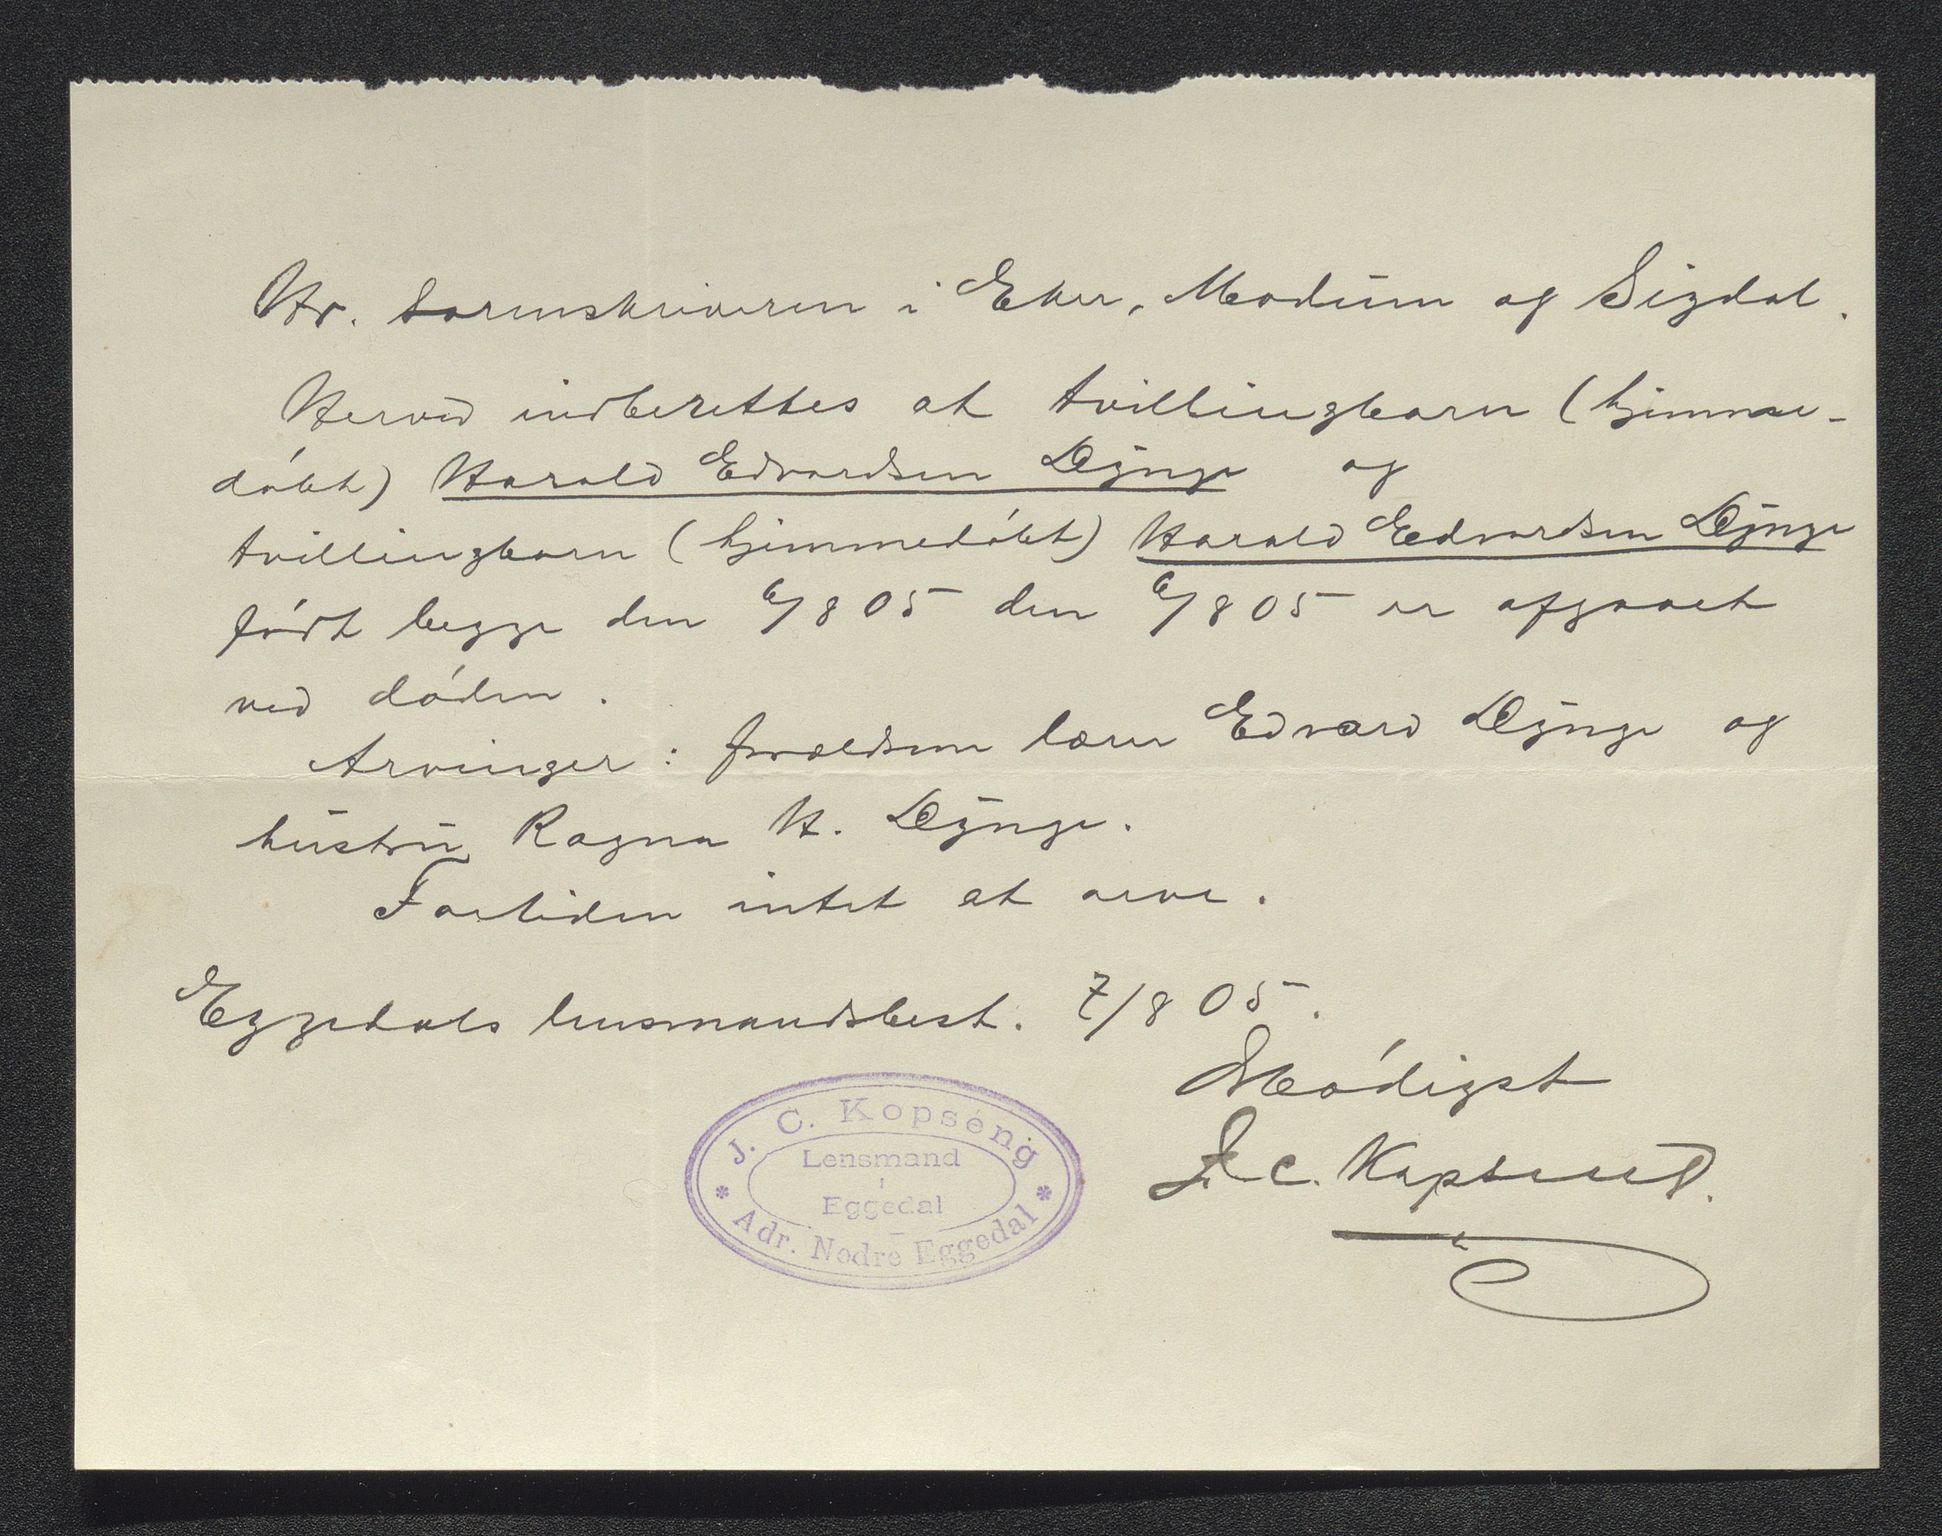 Hr. Sorenskriveren i Eker, Modum og Sigdal.
Herved indberettes at tvillingbarn (hjemme-
døbt) Harald Edvardsen Dynge og
tvillingbarn (hjemmedøbt) Harald Edvardsen Dynge
født begge den 6/8 05 den 6/8 05 er afgaaet
ved døden.
Arvinger: forældrene lærer Edvard Dynge og
hustru Ragna H. Dynge.
Fortiden intet at arve.
Eggedals lensmandsbest. 7/8 05.
Ærbødigst
J. C. Kopseng.
J. C. Kopséng
Lensmand
i
Eggedal
* Adr. Nedre Eggedal *